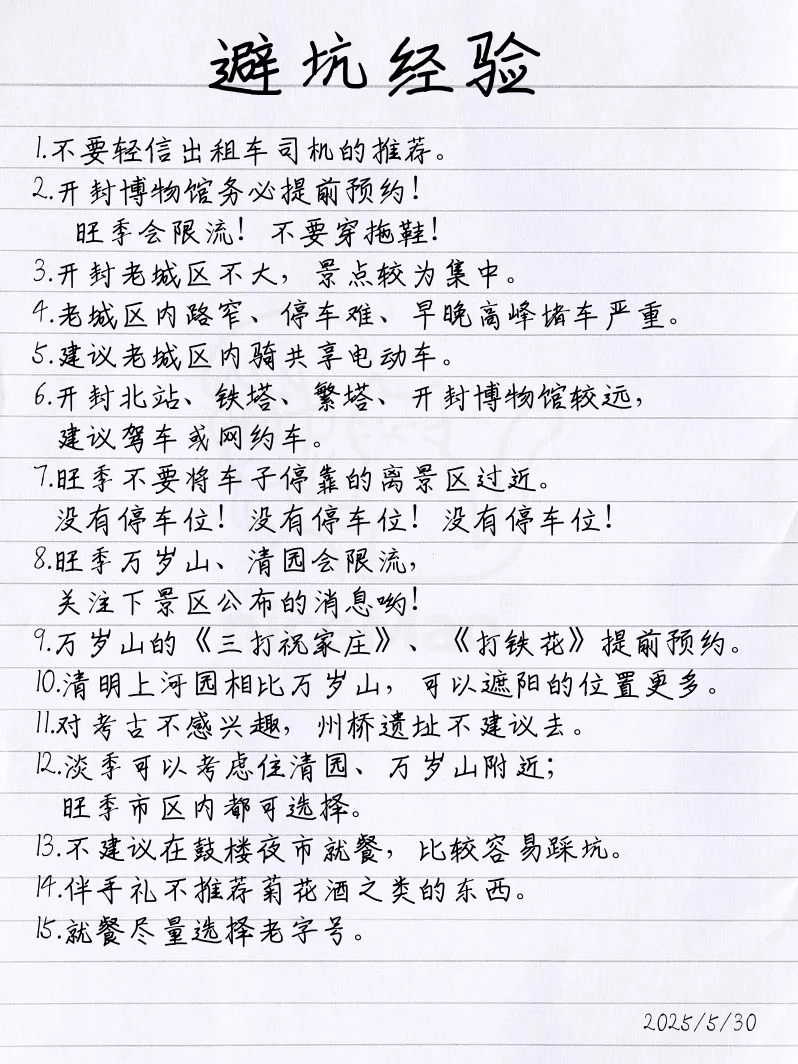 避坑经验
1.不要轻信出租车司机的推荐。
2.开封博物馆务必提前预约！
旺季会限流！不要穿拖鞋！
3.开封老城区不大，景点较为集中。
4.老城区内路窄、停车难、早晚高峰堵车严重。
5.建议老城区内骑共享电动车。
6.开封北站、铁塔、繁塔、开封博物馆较远，
建议驾车或网约车。
7.旺季不要将车子停靠的离景区过近。
没有停车位！没有停车位！没有停车位！
8.旺季万岁山、清园会限流，
关注下景区公布的消息哟！
9.万岁山的《三打祝家庄》、《打铁花》提前预约。
10.清明上河园相比万岁山，可以遮阳的位置更多。
11.对考古不感兴趣，州桥遗址不建议去。
12.淡季可以考虑住清园、万岁山附近；
旺季市区内都可选择。
13.不建议在鼓楼夜市就餐，比较容易踩坑。
14.伴手礼不推荐菊花酒之类的东西。
15.就餐尽量选择老字号。
2025/5/30